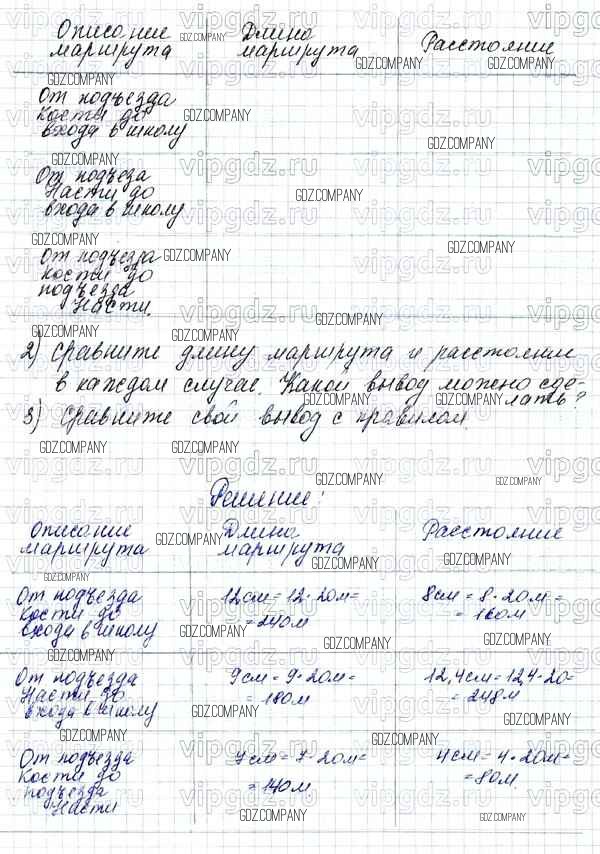 Описание маршрута Длина маршрута Расстояние
От подъезда
Кости до
входа в школу
От подъеза
Насти до
входа в школу
От подъезда
Кости до
подъезда
Насти.
2) Сравните длину маршрута и расстояние
в каждом случае. Какой вывод можно сде-
лать?
3) Сравните свой вывод с правилом.
Решение:
Описание маршрута Длина маршрута Расстояние
От подъезда
Кости до
входа в школу
12см = 12·20м=
= 240м
8см = 8·20м=
= 160м
От подъезда
Насти до
входа в школу
9см = 9·20м=
= 180м
12,4см = 12,4·20=
= 248м
От подъезда
Кости до
подъезда
Насти
7см = 7·20м=
= 140м
4см = 4·20м=
= 80м
vipgdz.ru
GDZ.COMPANY